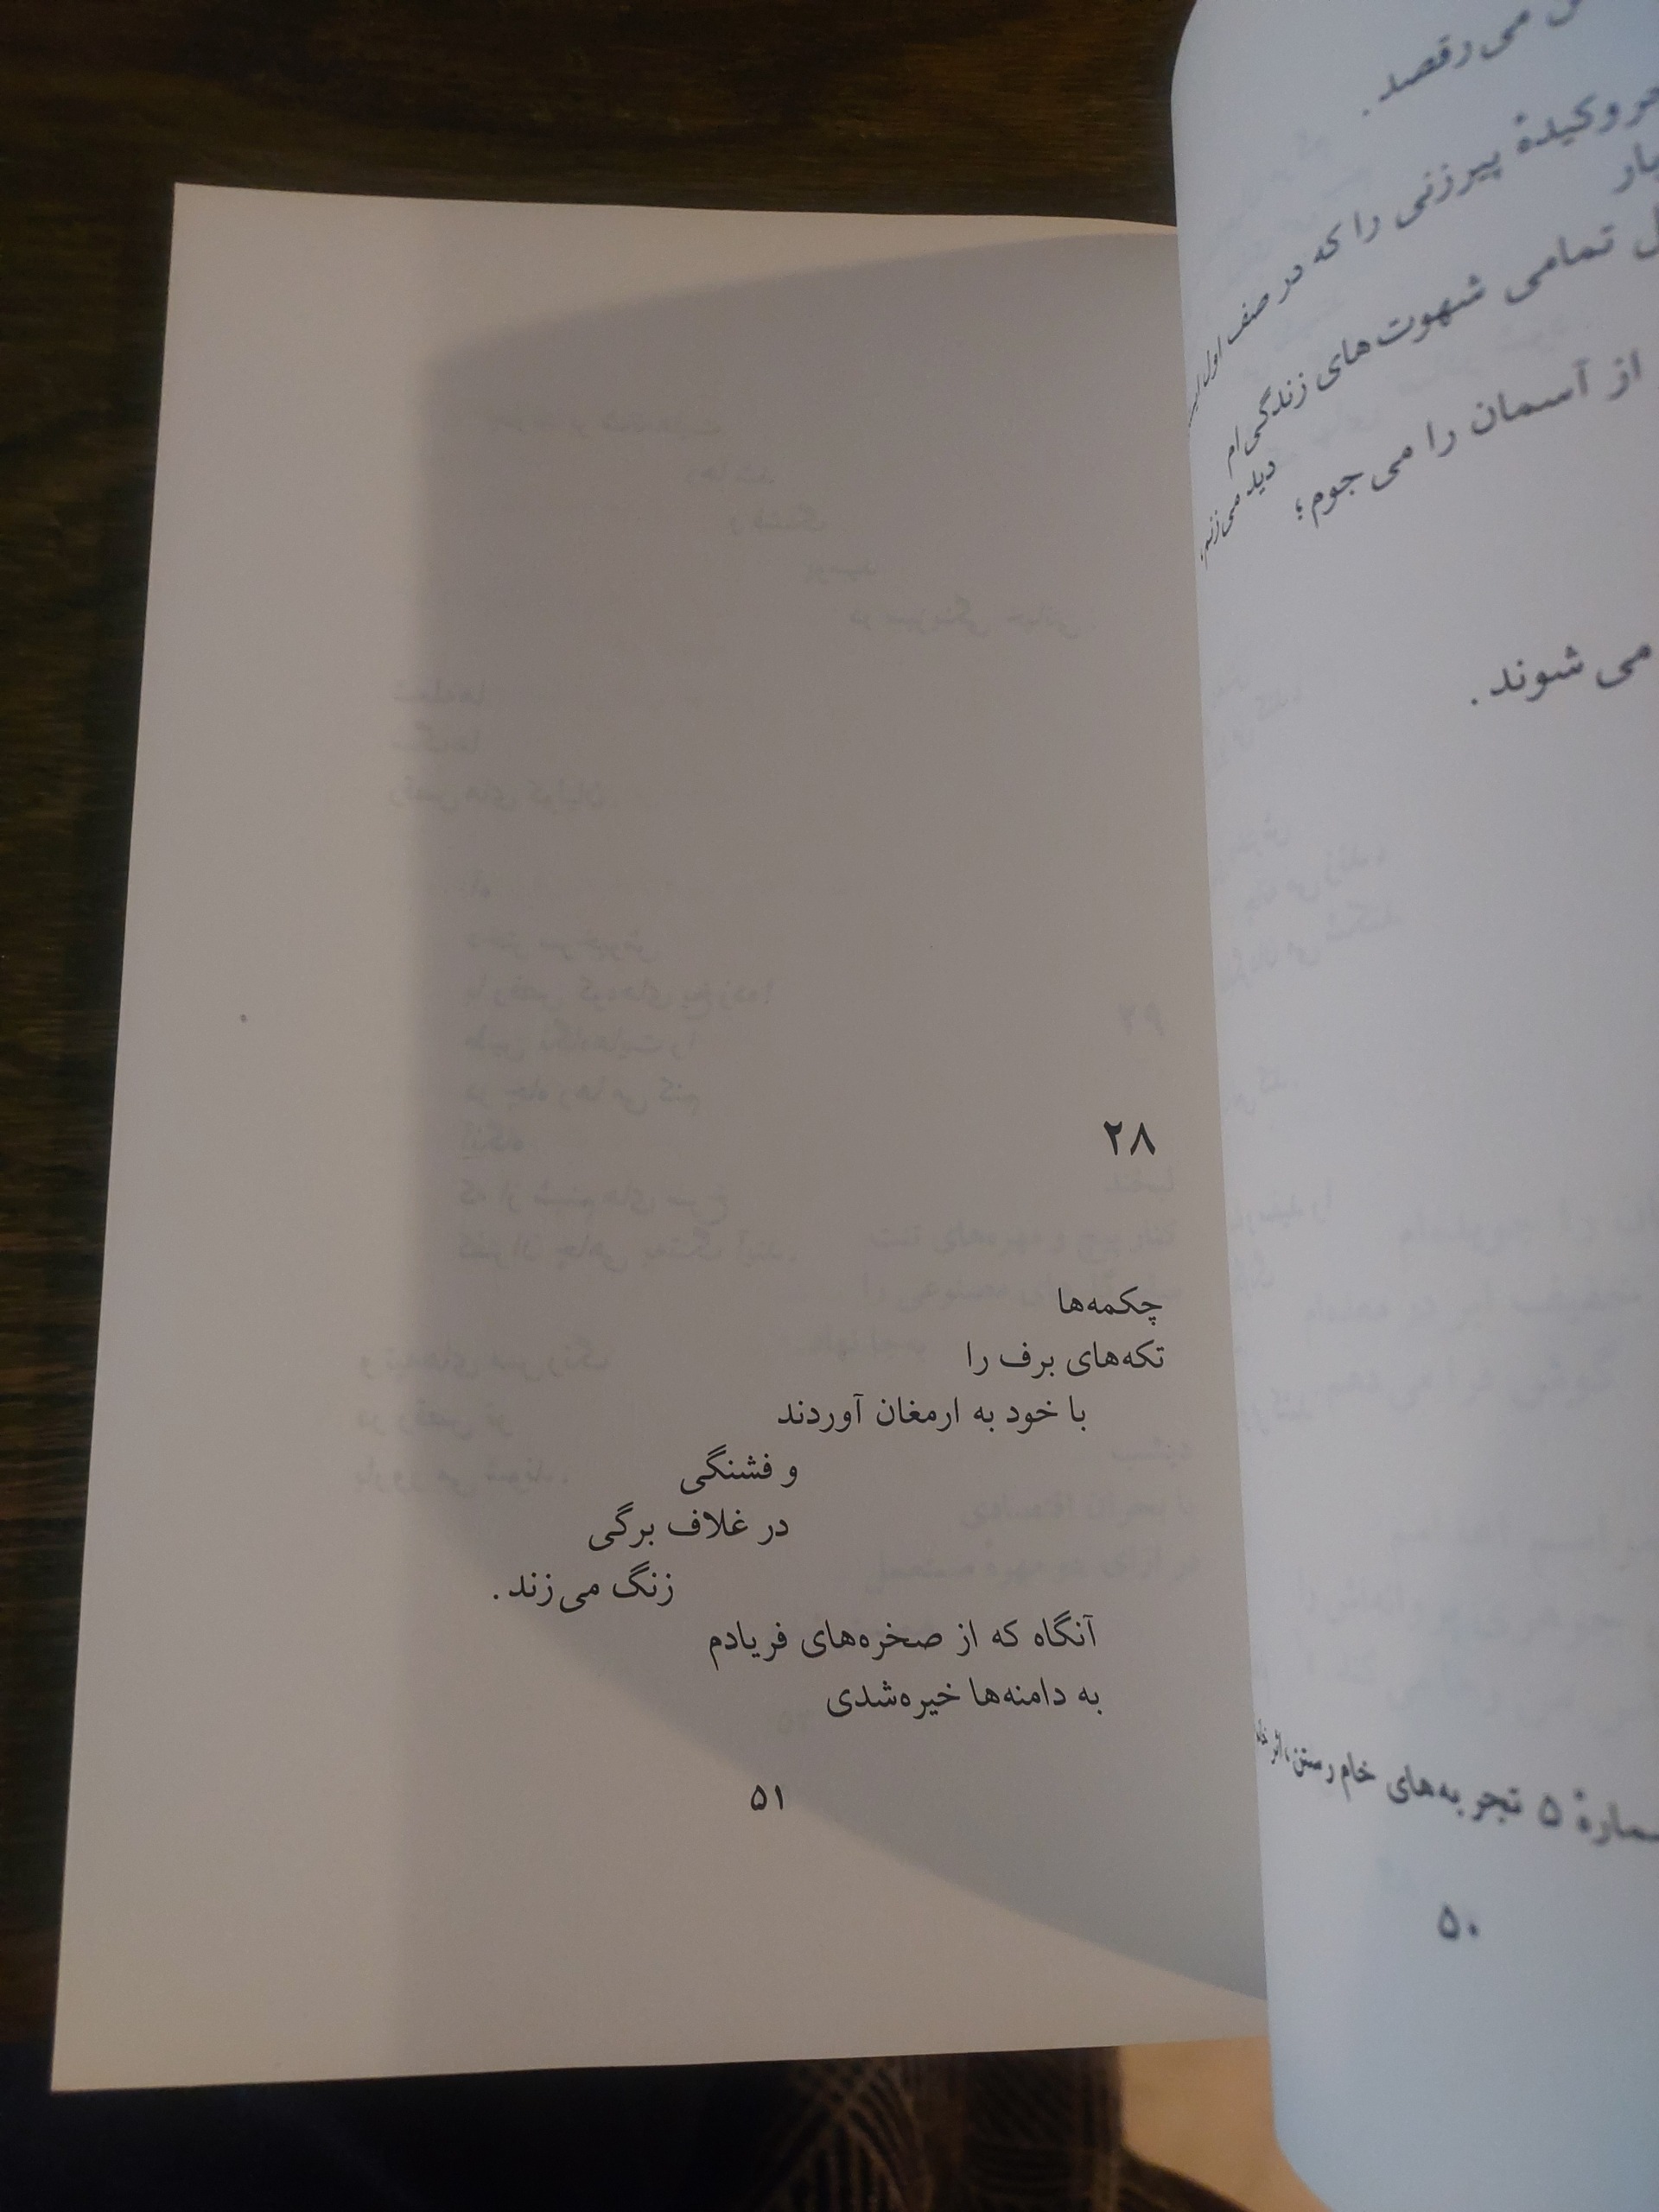 می رقصد .
پیرزنی را که در صف اول
تمامی شهوت‌های زندگی‌ام
دید می‌زنم،
از آسمان را می‌جوم؛
می شوند .
۵ تجربه‌های خام رستن، اثر
۵۰
۲۸
چکمه‌ها
تکه‌های برف را
با خود به ارمغان آوردند
و فشنگی
در غلاف برگی
زنگ می‌زند .
آنگاه که از صخره‌های فریادم
به دامنه‌ها خیره‌شدی
۵۱